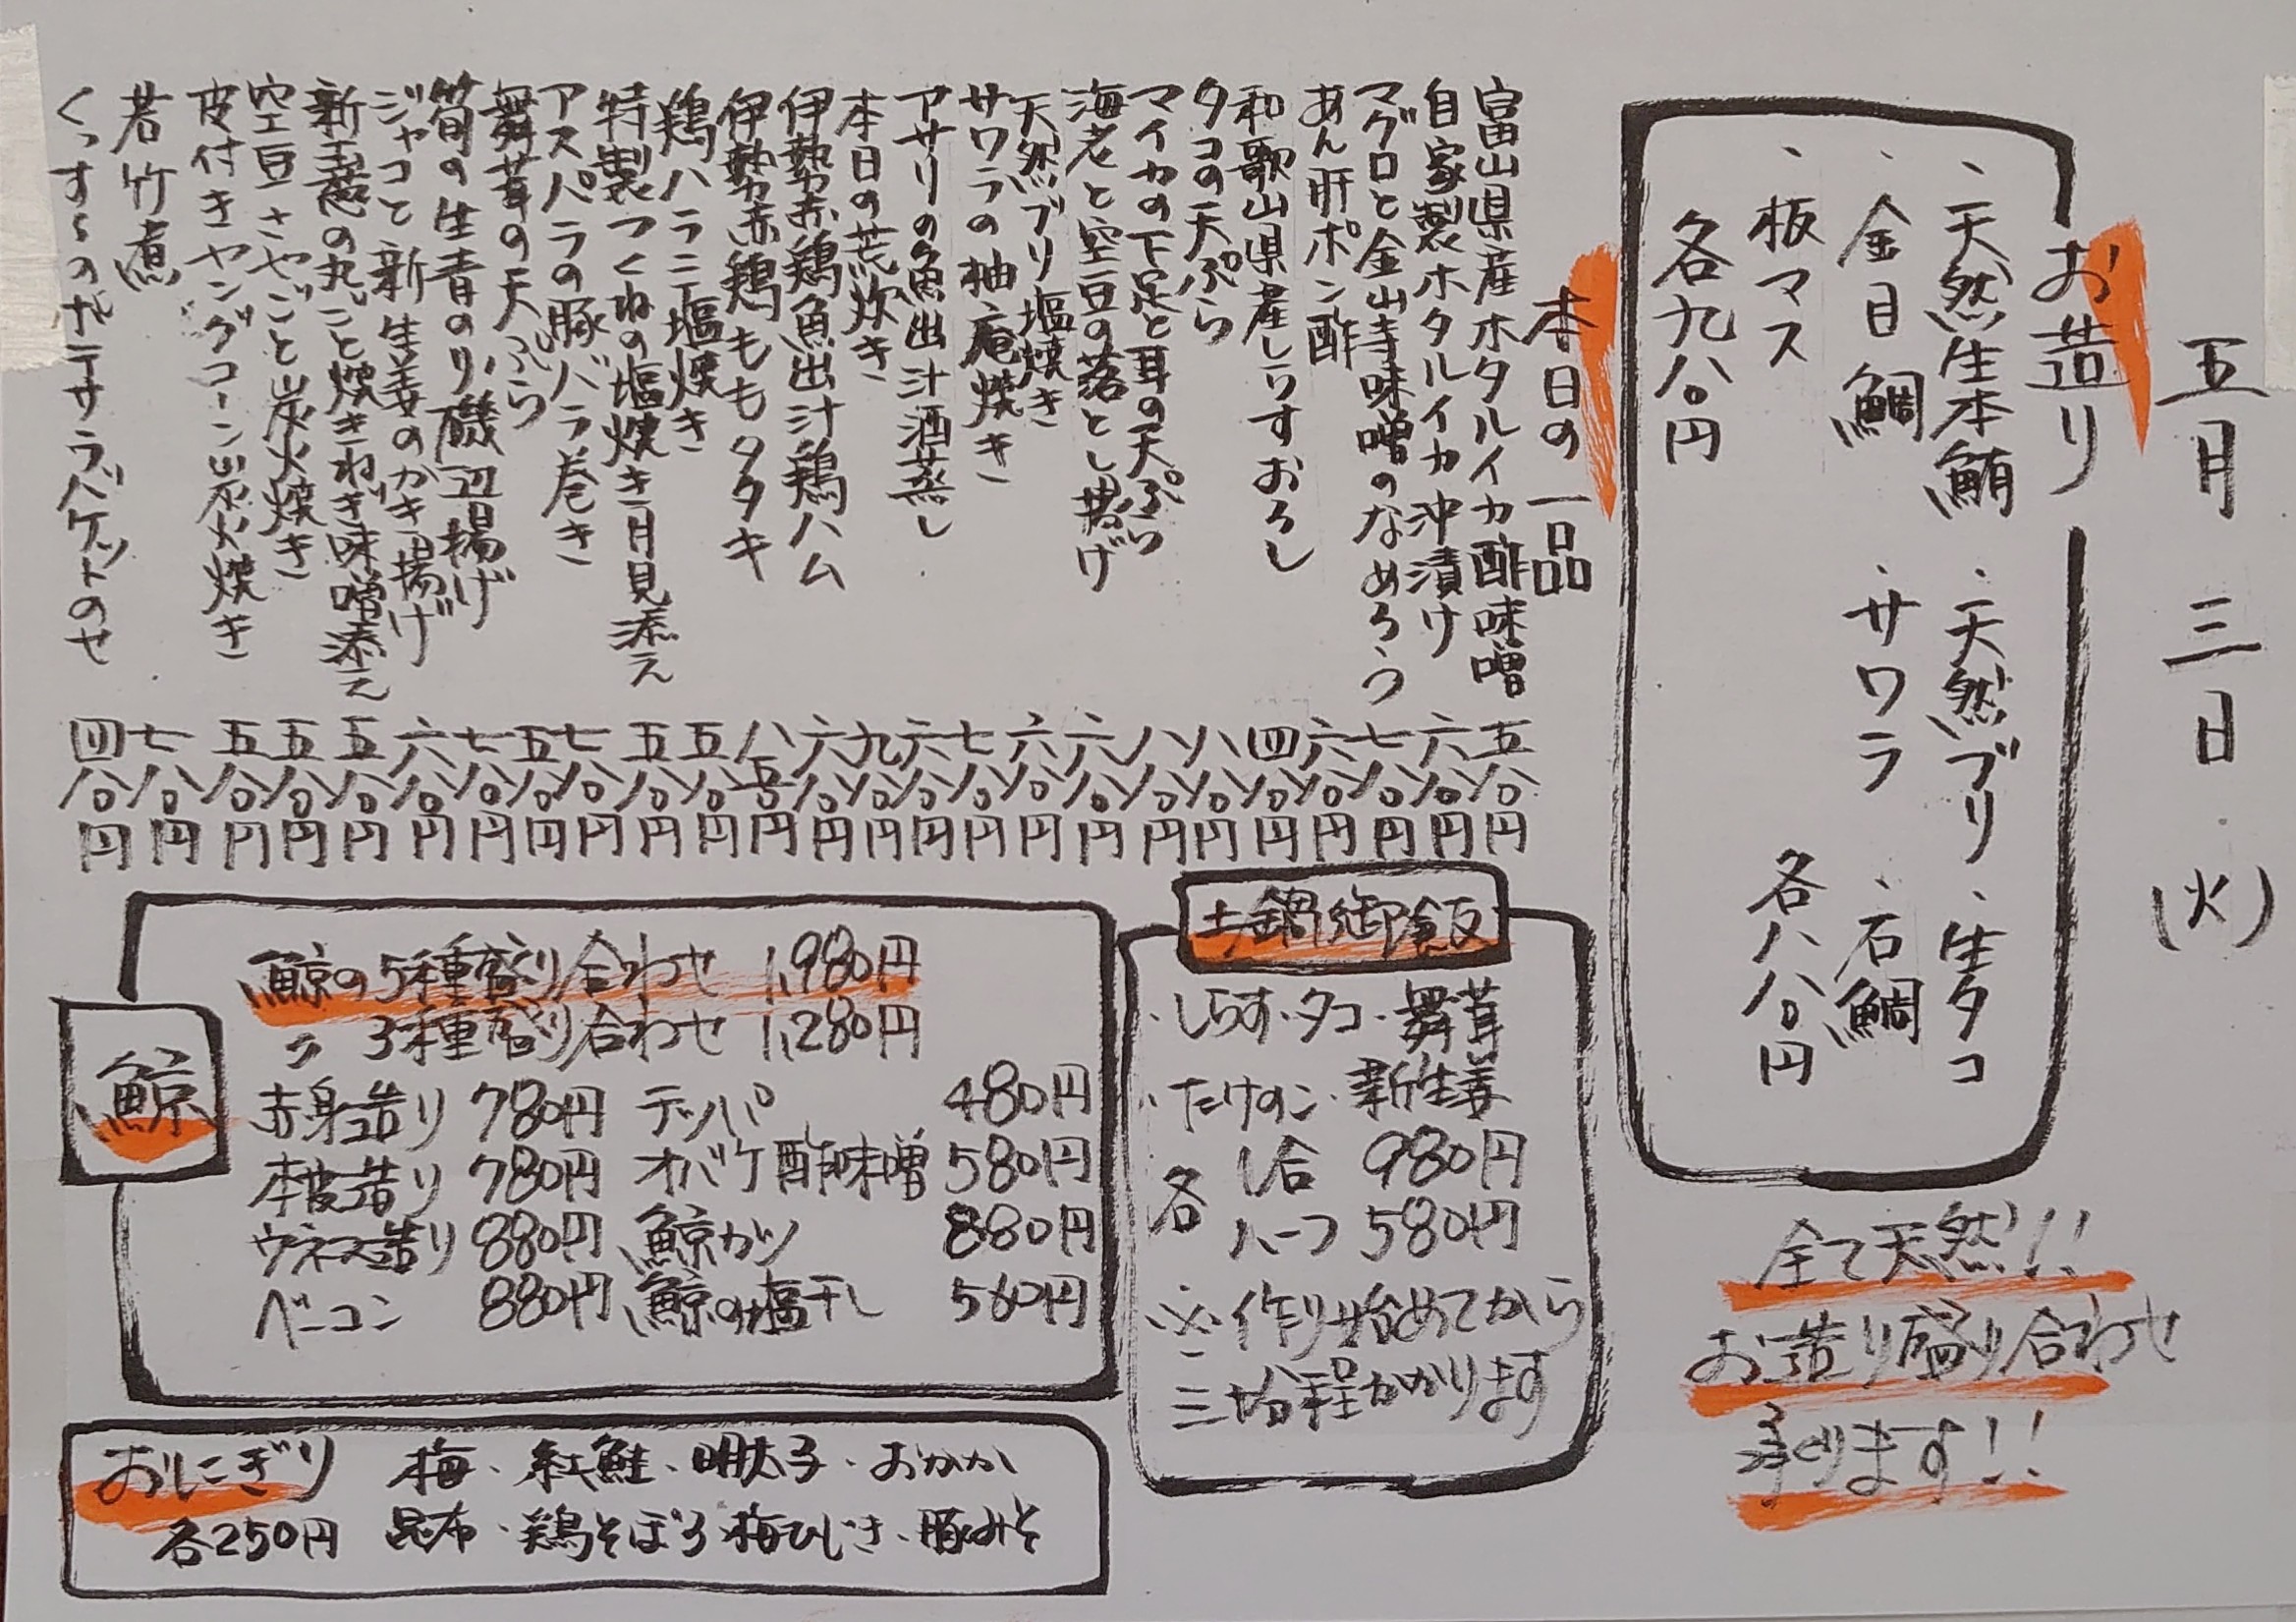 五月三日(火)
お造り
・天然生本鮪・天然ブリ・生タコ
・金目鯛・サワラ・石鯛
・板マス
各八八〇円
各九八〇円
全て天然!!
お造り盛り合わせ
承ります!!
本日の一品
富山県産ホタルイカ酢味噌 五八〇円
自家製ホタルイカ沖漬け 六八〇円
マグロと金山寺味噌のなめろう 七八〇円
あん肝ポン酢 六八〇円
和歌山県産しらすおろし 四八〇円
タコの天ぷら 八八〇円
マイカの下足と耳の天ぷら 八八〇円
海老と空豆の落とし揚げ 六八〇円
天然ブリ塩焼き 六八〇円
サワラの柚庵焼き 七八〇円
アサリの魚出汁酒蒸し 六八〇円
本日の荒炊き 九八〇円
伊勢赤鶏魚出汁鶏ハム 六八〇円
伊勢赤鶏ももタタキ 八五〇円
鶏ハラミ塩焼き 五八〇円
特製つくねの塩焼き月見添え 五八〇円
アスパラの豚バラ巻き 七八〇円
舞茸の天ぷら 五八〇円
筍の生青のり磯辺揚げ 七八〇円
ジャコと新生姜のかき揚げ 六八〇円
新玉葱の丸ごと焼きねぎ味噌添え 五八〇円
空豆さやごと炭火焼き 五八〇円
皮付きヤングコーン炭火焼き 五八〇円
若竹煮 七八〇円
くっすぅのポテサラバケットのせ 四八〇円
土鍋御飯
・しらす・タコ・舞茸
・たけのこ・新生姜
各 1合 980円
ハーフ 580円
※作り始めてから
三十分程かかります
鯨
鯨の5種盛り合わせ 1,980円
〃 3種盛り合わせ 1,280円
赤身造り 780円 テッパ 480円
本皮造り 780円 オバケ酢味噌 580円
ウネス造り 880円 鯨カツ 880円
ベーコン 880円 鯨の塩干し 560円
おにぎり 梅・紅鮭・明太子・おかか
各250円 昆布・鶏そぼろ・梅ひじき・豚みそ